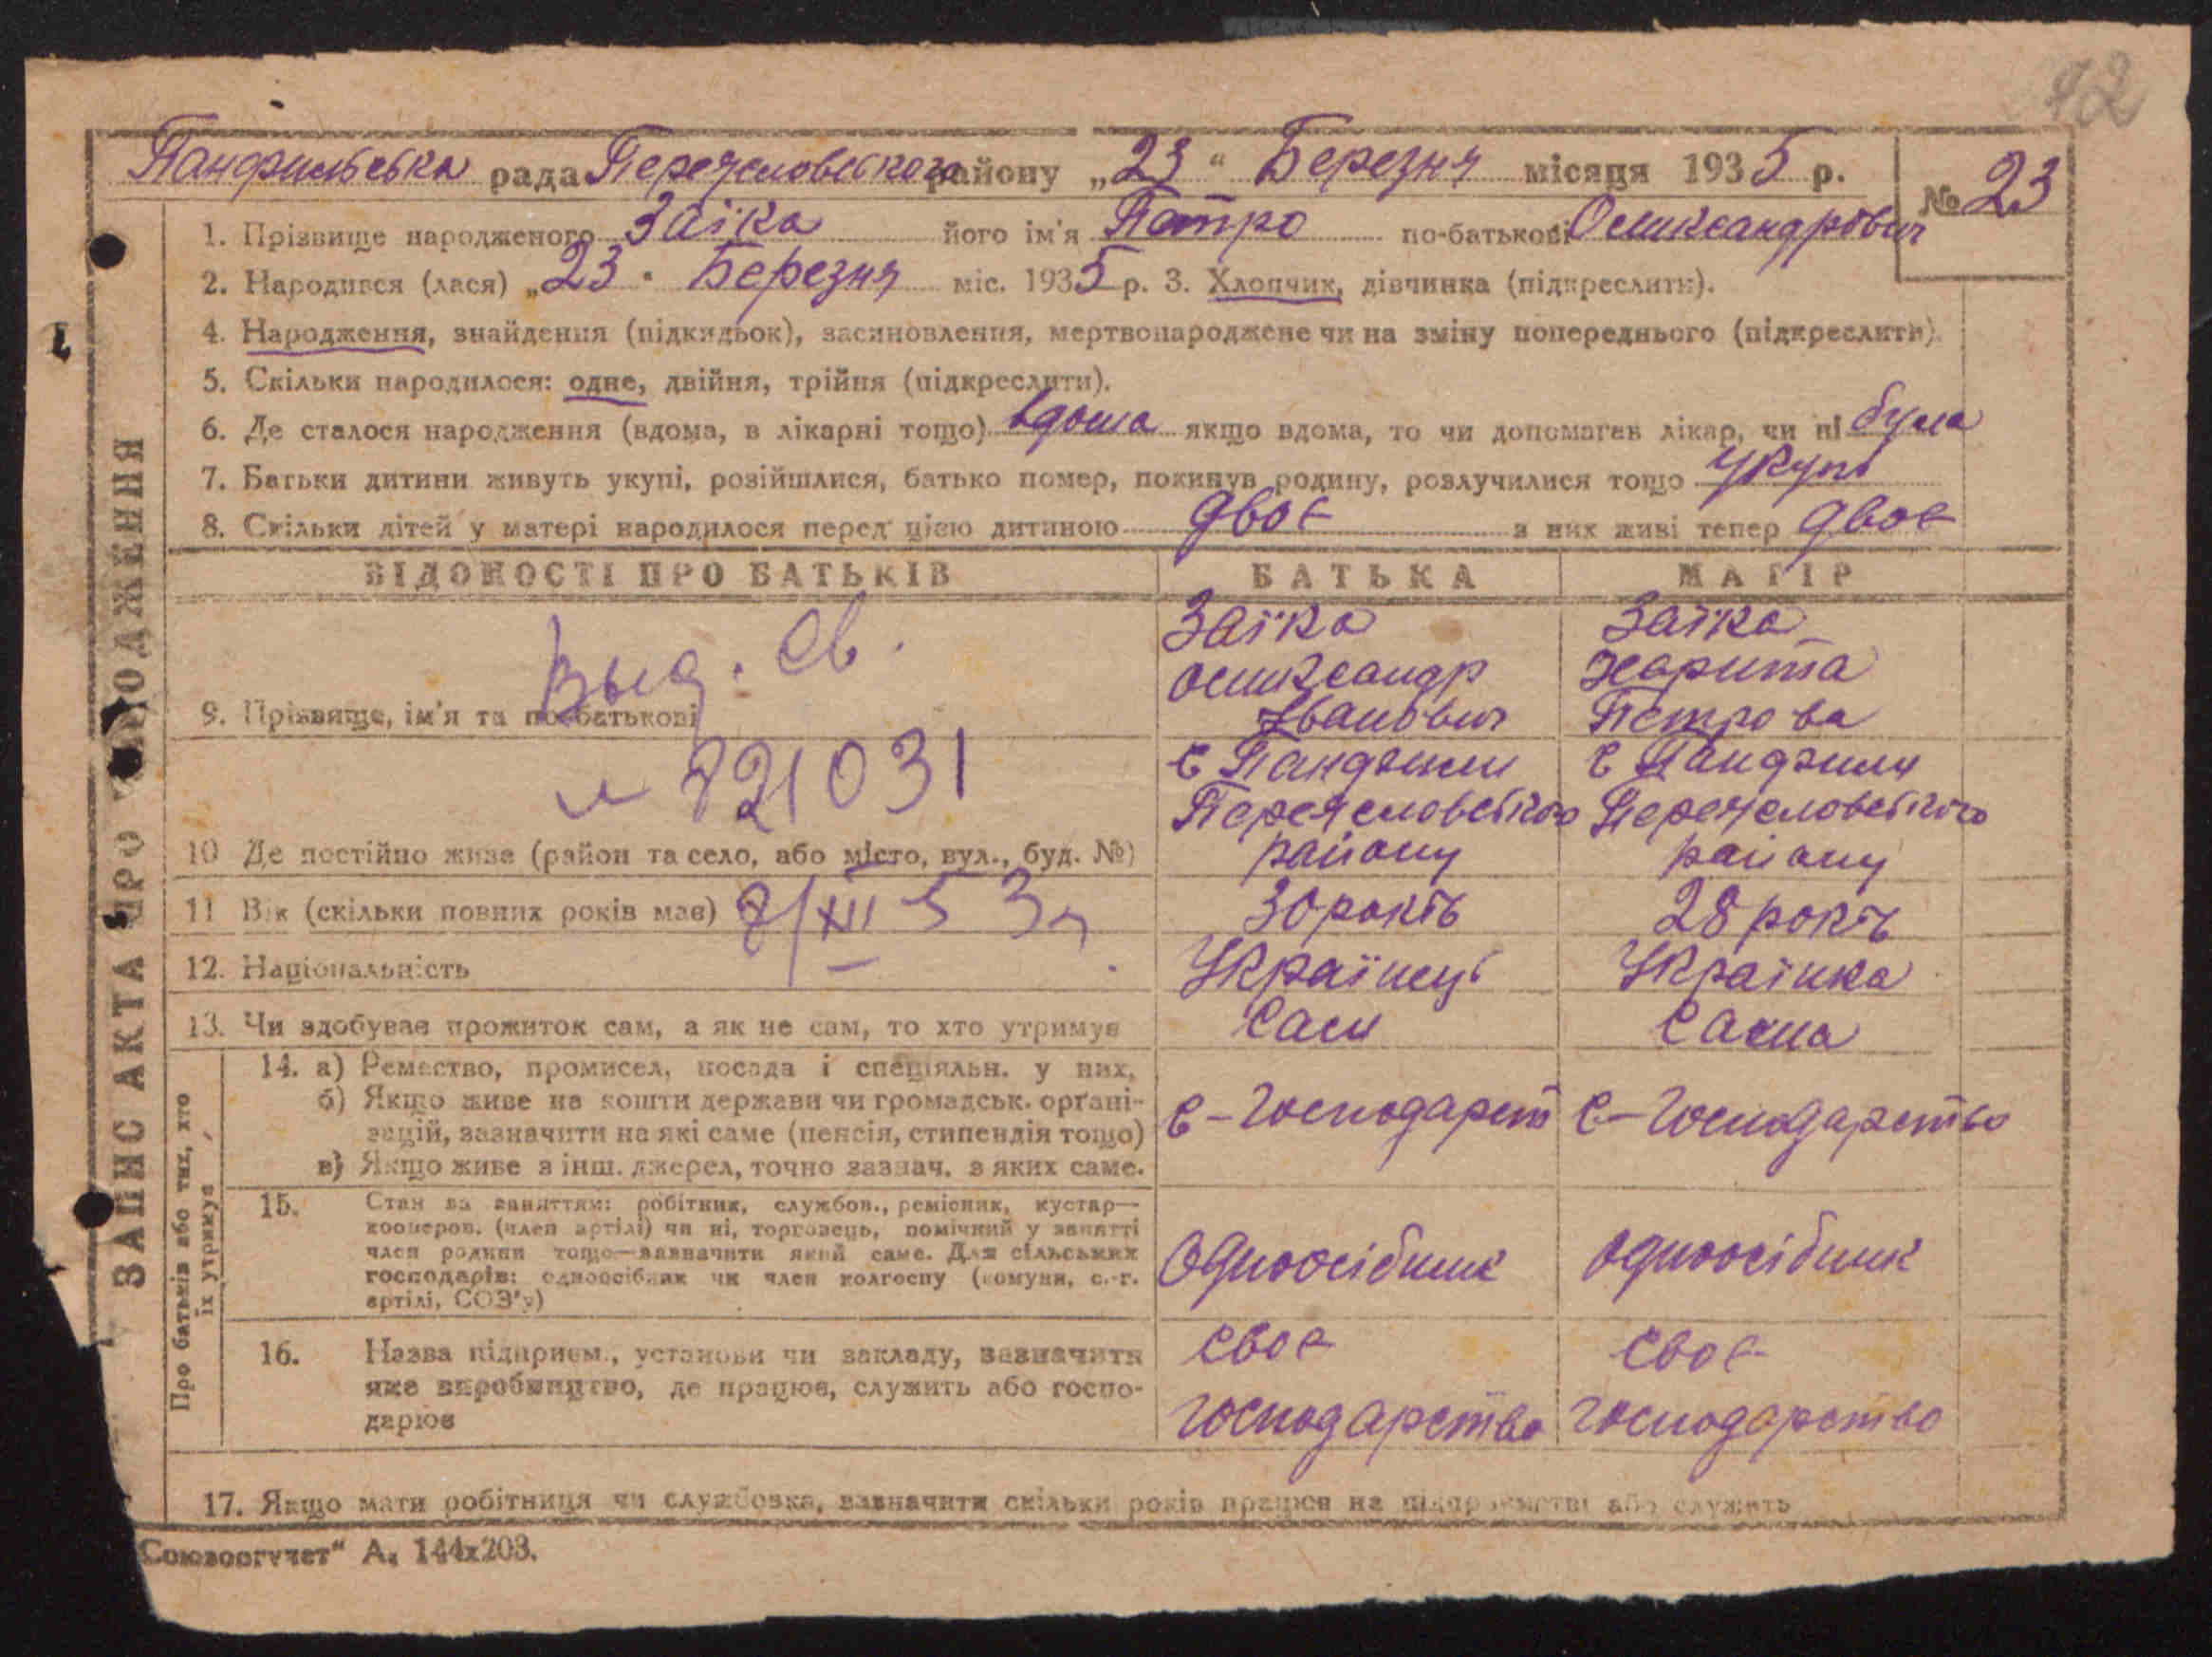 72
Панфильська рада Переяславського району „23“ Березня місяця 1935 р. № 23
1. Прізвище народженого Заїка його ім'я Петро по-батькові Олександрович
2. Народився (лася) „23" Березня міс. 1935 р. 3. Хлопчик, дівчинка (підкреслити).
4. Народження, знайдення (підкидьок), засиновлення, мертвонароджене чи на зміну попереднього (підкреслити).
5. Скільки народилося: одне, двійня, трійня (підкреслити).
6. Де сталося народження (вдома, в лікарні тощо) вдома якщо вдома, то чи допомагав лікар, чи ні була
7. Батьки дитини живуть укупі, розійшлися, батько помер, покинув родину, розлучилися тощо укупі
8. Скільки дітей у матері народилося перед цією дитиною двоє з них живі тепер двоє
ВІДОМОСТІ ПРО БАТЬКІВ БАТЬКА МАТІР
Выд. св.
9. Прізвище, ім'я та по-батькові
Заїка Олександр Іванович
Заїка Харита Петрова
821031
10 Де постійно живе (район та село, або місто, вул., буд. №)
с Панфили Переяславського району
с Панфили Переяславського району
11 Вік (скільки повних років має) 30 років 28 років
8/XII 53
12. Національність Українець Українка
13. Чи здобуває прожиток сам, а як не сам, то хто утримує Сам Сама
Про батьків або тих, хто їх утримує
14. а) Ремество, промисел, посада і спеціяльн. у них.
б) Якщо живе на кошти держави чи громадськ. органі-
зацій, зазначити на які саме (пенсія, стипендія тощо)
в) Якщо живе з інш. джерел, точно зазнач. з яких саме.
с-господарст с-господарство
15. Стан за заняттям: робітник, службов., ремісник, кустар—
кооперов. (член артілі) чи ні, торговець, помічний у занятті
член родини тощо—зазначити який саме. Для сільських
господарів: одноосібник чи член колгоспу (комуни, с.-г.
артілі, СОЗ'у)
Одноосібник одноосібник
16. Назва підприєм., установи чи закладу, зазначити
яке виробництво, де працює, служить або госпо-
дарює
своє господарство
своє господарство
17. Якщо мати робітниця чи службовка, зазначити скільки років працює на підприємстві або служить
ЗАПИС АКТА ПРО НАРОДЖЕННЯ
Союзоргучет" А, 144х203.